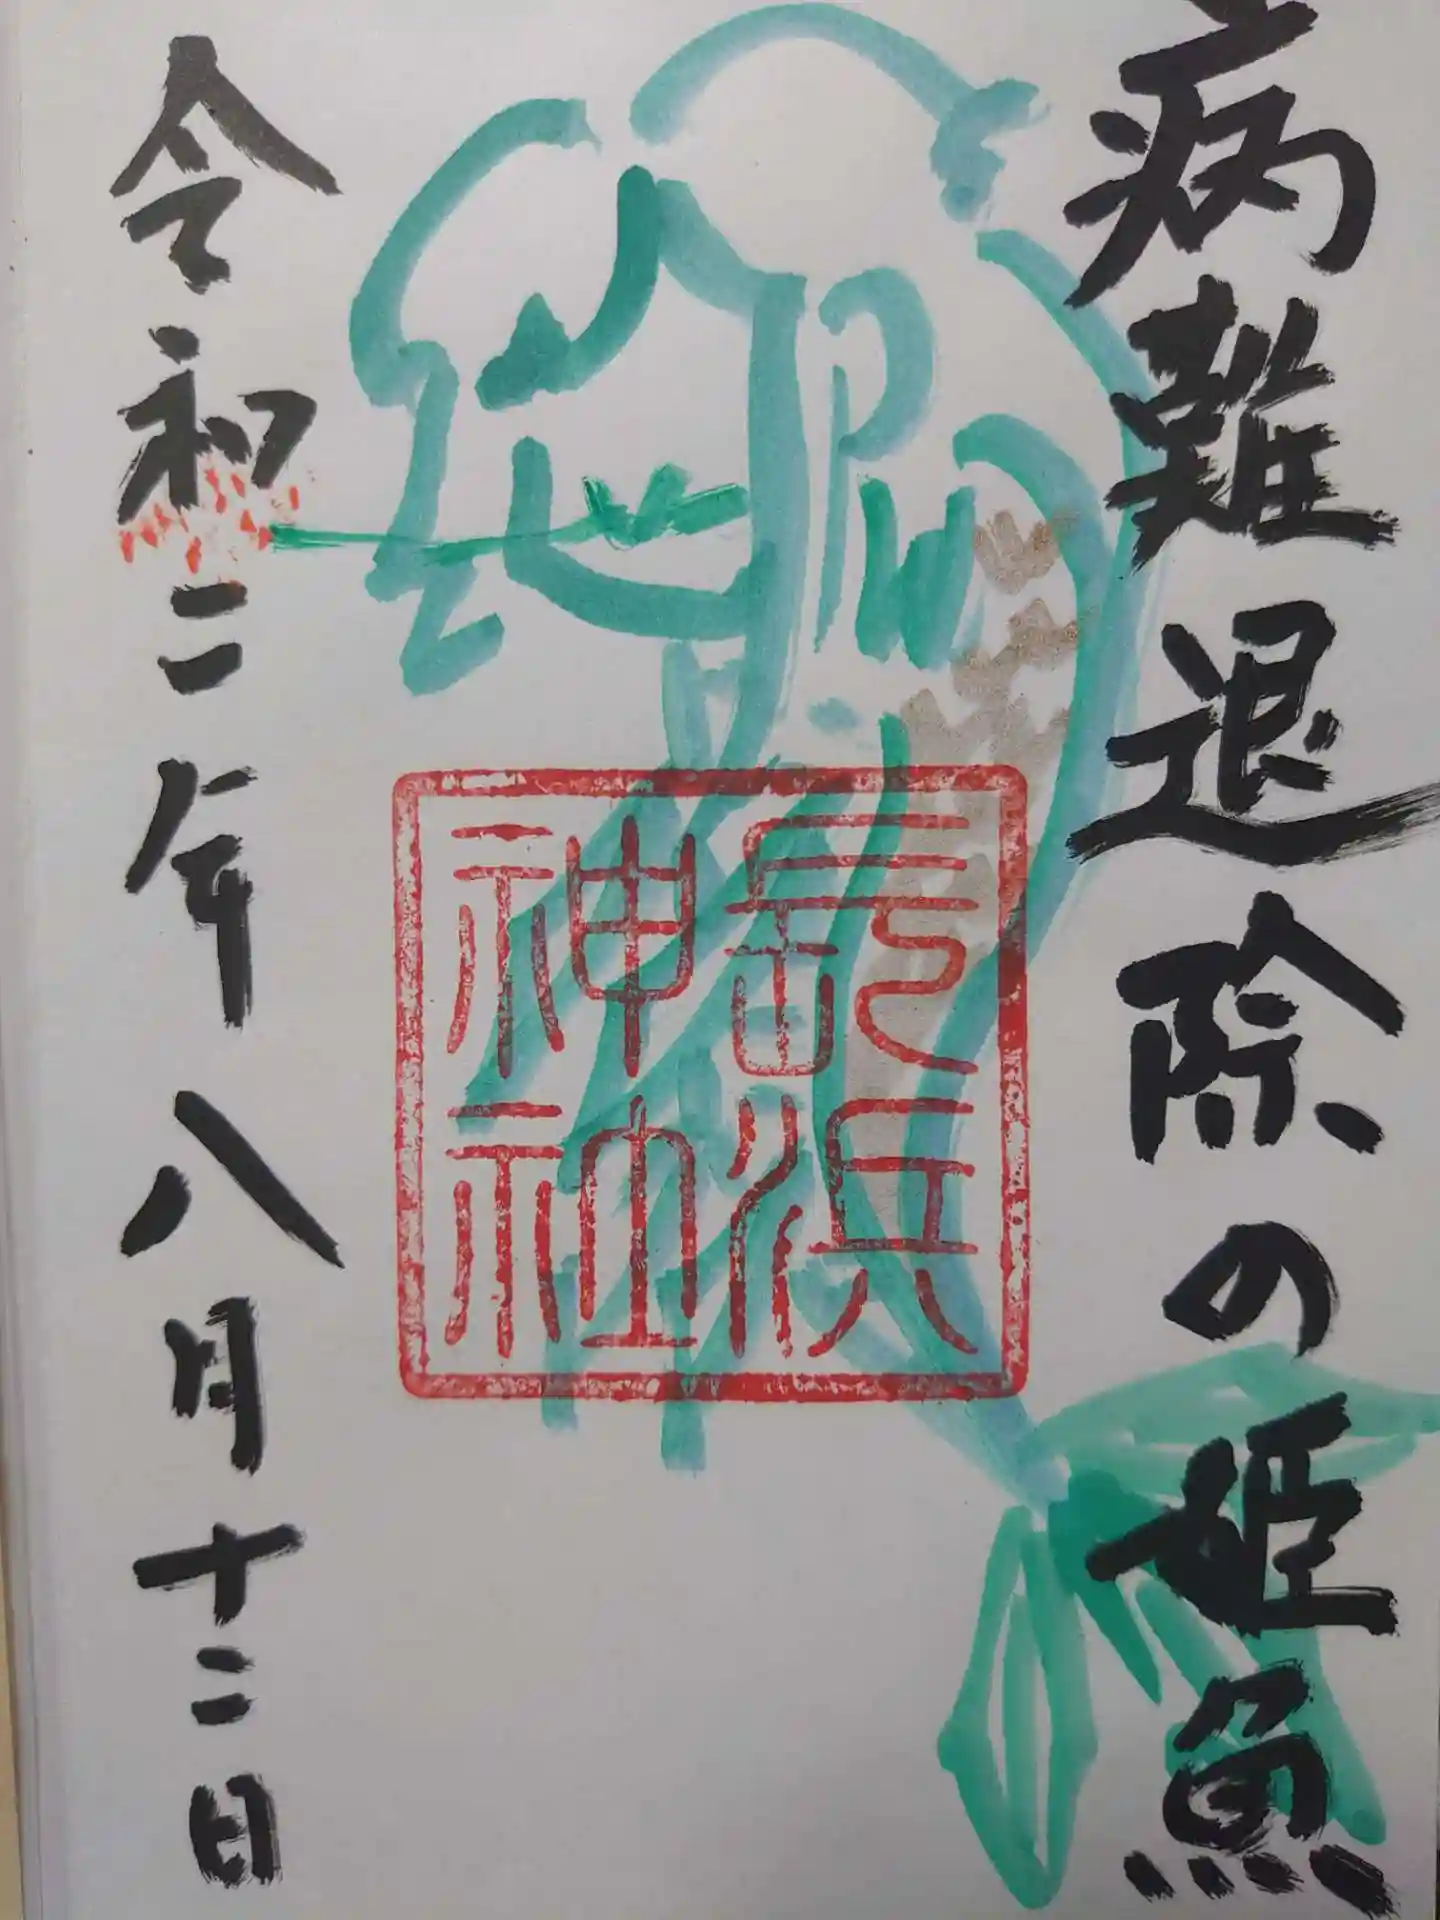 病難退除の姫魚
長浜神社
令和二年八月十二日